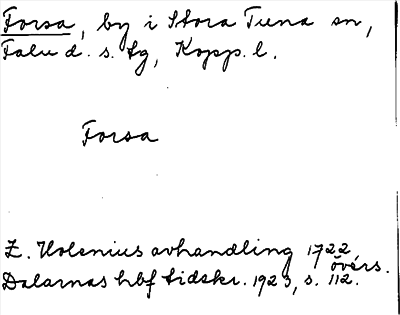 Forsa, by i Stora Tuna sn,
Falu d. s. tg, Kopp. l.
Forsa
Z. Holenius avhandling 1722
övers.
Dalarnas hbf tidskr. 1923, s. 112.